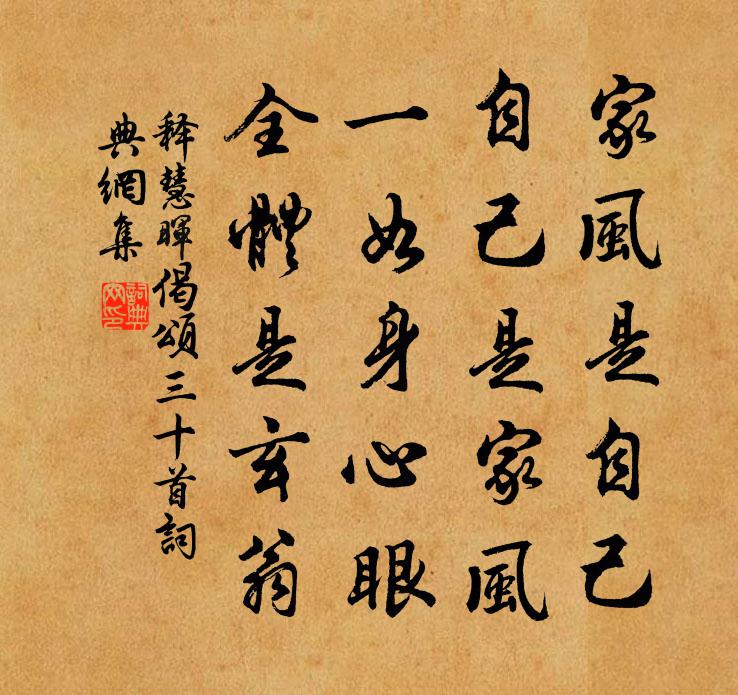 家風是自己
自己是家風
一如身心眼
全體是玄翁
釋慧暉偈頌三十首詞
典網集
詞典網印